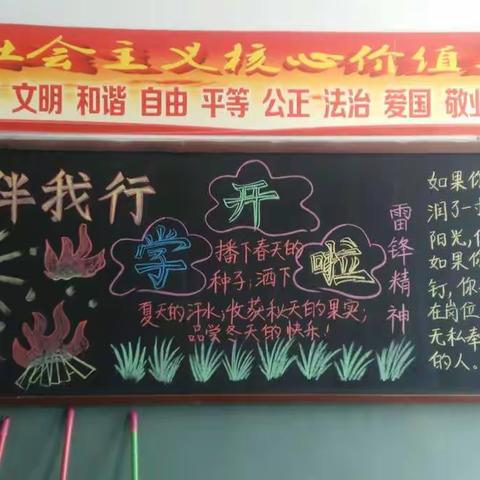 社会主义核心价值
文明 和谐 自由 平等 公正 法治 爱国 敬业
伴我行
开
学
啦
播下春天的
种子;洒下
夏天的汗水;收获秋天的果实;
品尝冬天的快乐!
雷锋精神
如果你
润了一
阳光,
如果你
钉,你
在岗位
无私奉
的人。